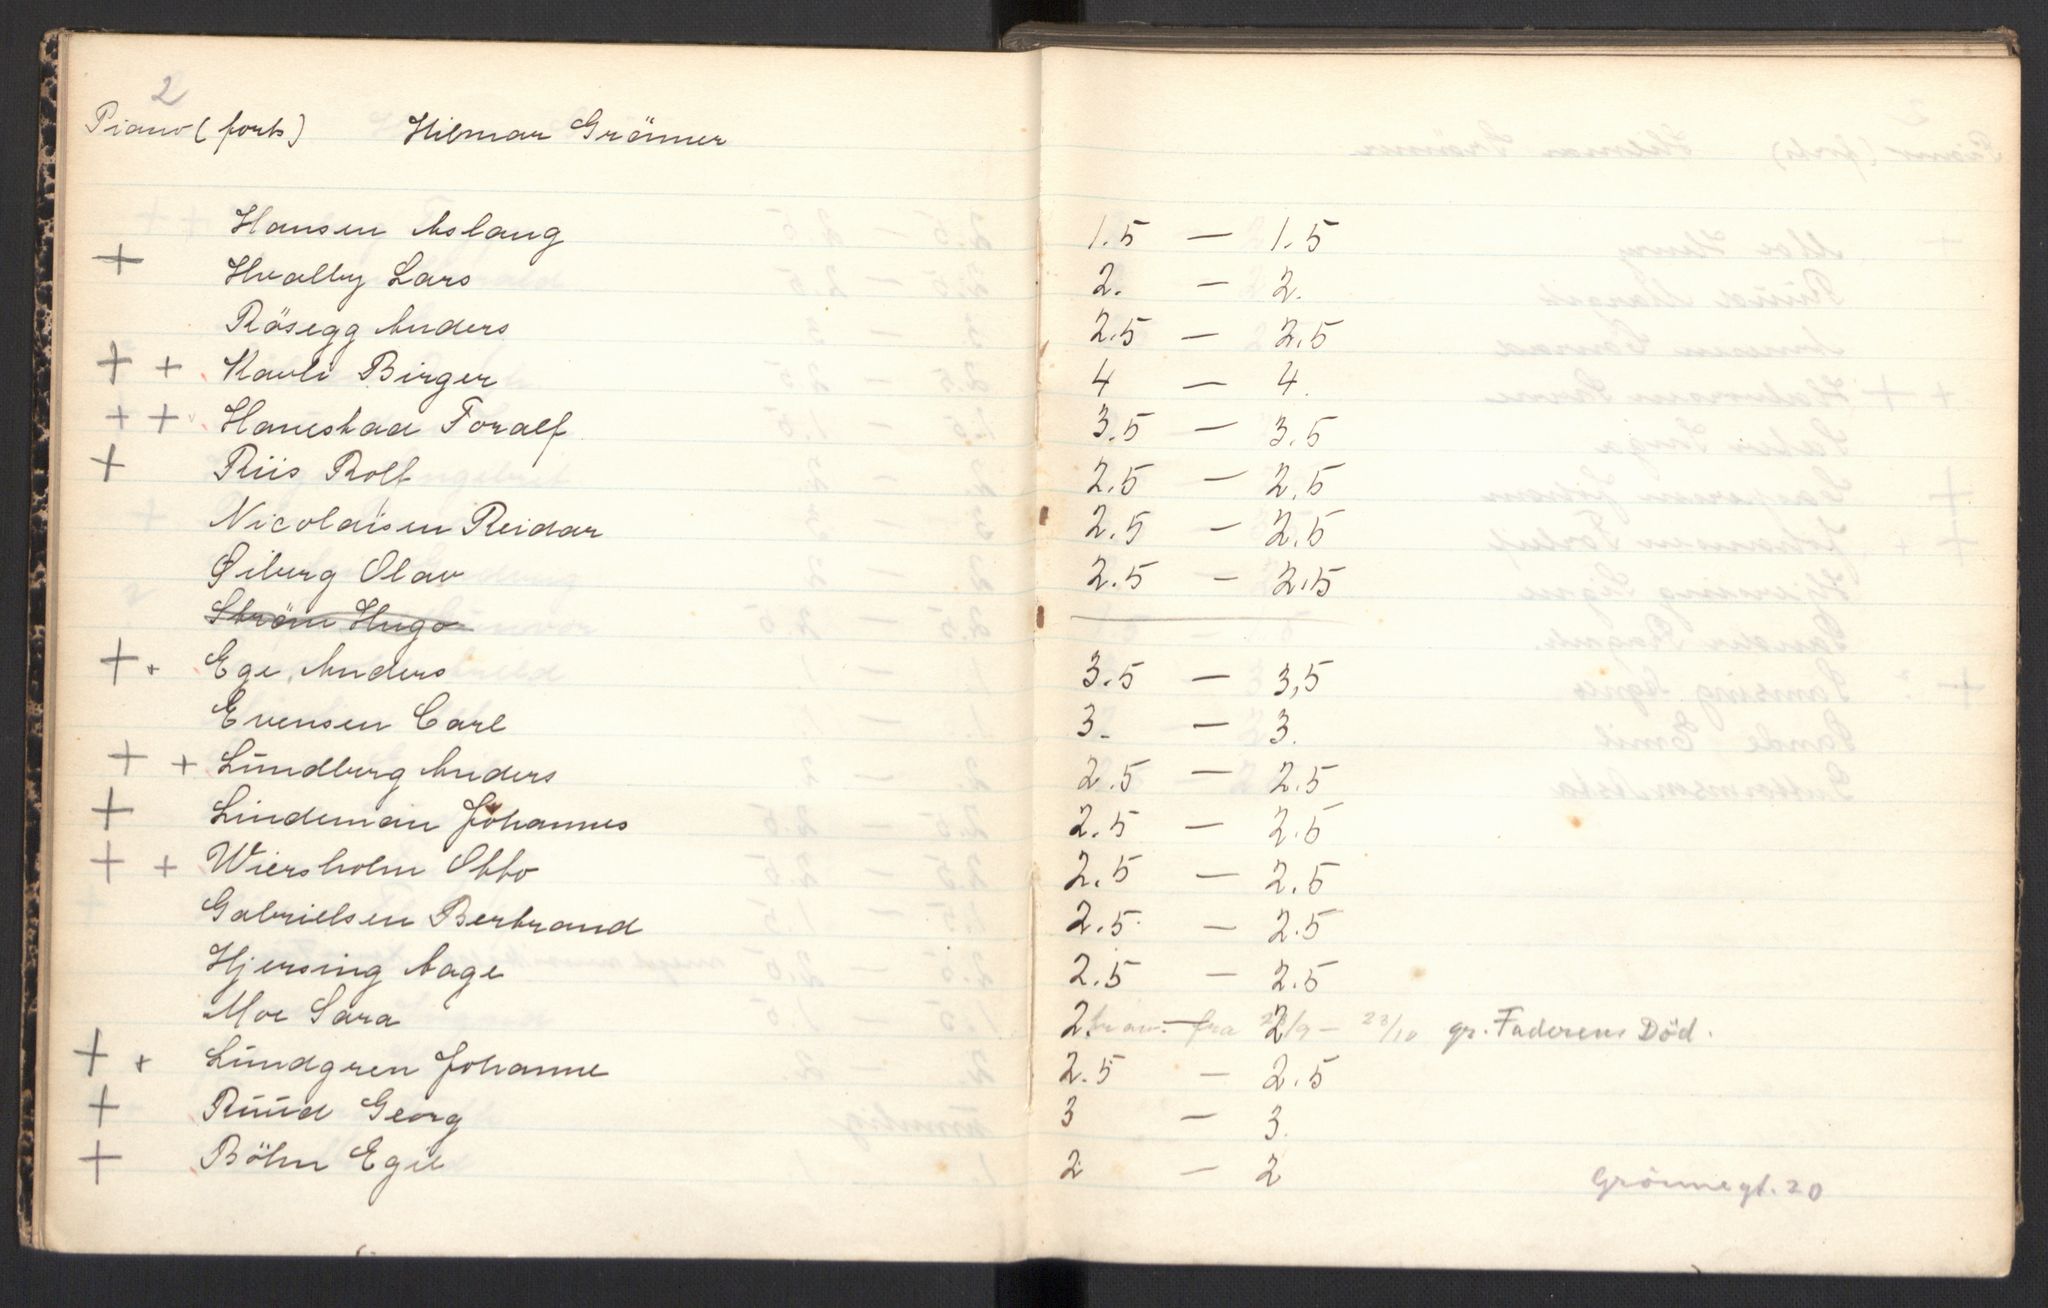 2
Piano (forts) Hilmar Grönner
Hansen Aslaug 1.5 — 1.5
+ Hvalby Lars 2. — 2.
Rösegg Anders 2.5 — 2.5
+ + Kavli Birger 4 — 4.
+ + Hanestad Toralf 3.5 — 3.5
+ Riis Rolf 2.5 — 2.5
Nicolaisen Reidar 2.5 — 2.5
Øiberg Olav 2.5 — 2.5
Ström Hugo —
+ + Ege Anders 3.5 — 3,5
Evensen Carl 3. — 3.
+ + Lundberg Anders 2.5 — 2.5
+ Lindeman Johannes 2.5 — 2.5
+ + Wiersholm Otto 2.5 — 2.5
Gabrielsen Bertrand 2.5 — 2.5
Hjersing Aage 2.5 — 2.5
Moe Sara 2. — 2 fra /9 — 23/10 gr. Faderens Död.
+ + Lundgren Johanne 2.5 — 2.5
+ Ruud Georg 3 — 3.
+ Böhn Egil 2 — 2
Grönnegt. 20